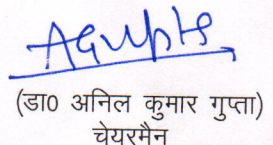 AGupta
(डा0 अनिल कुमार गुप्ता)
चेयरमैन